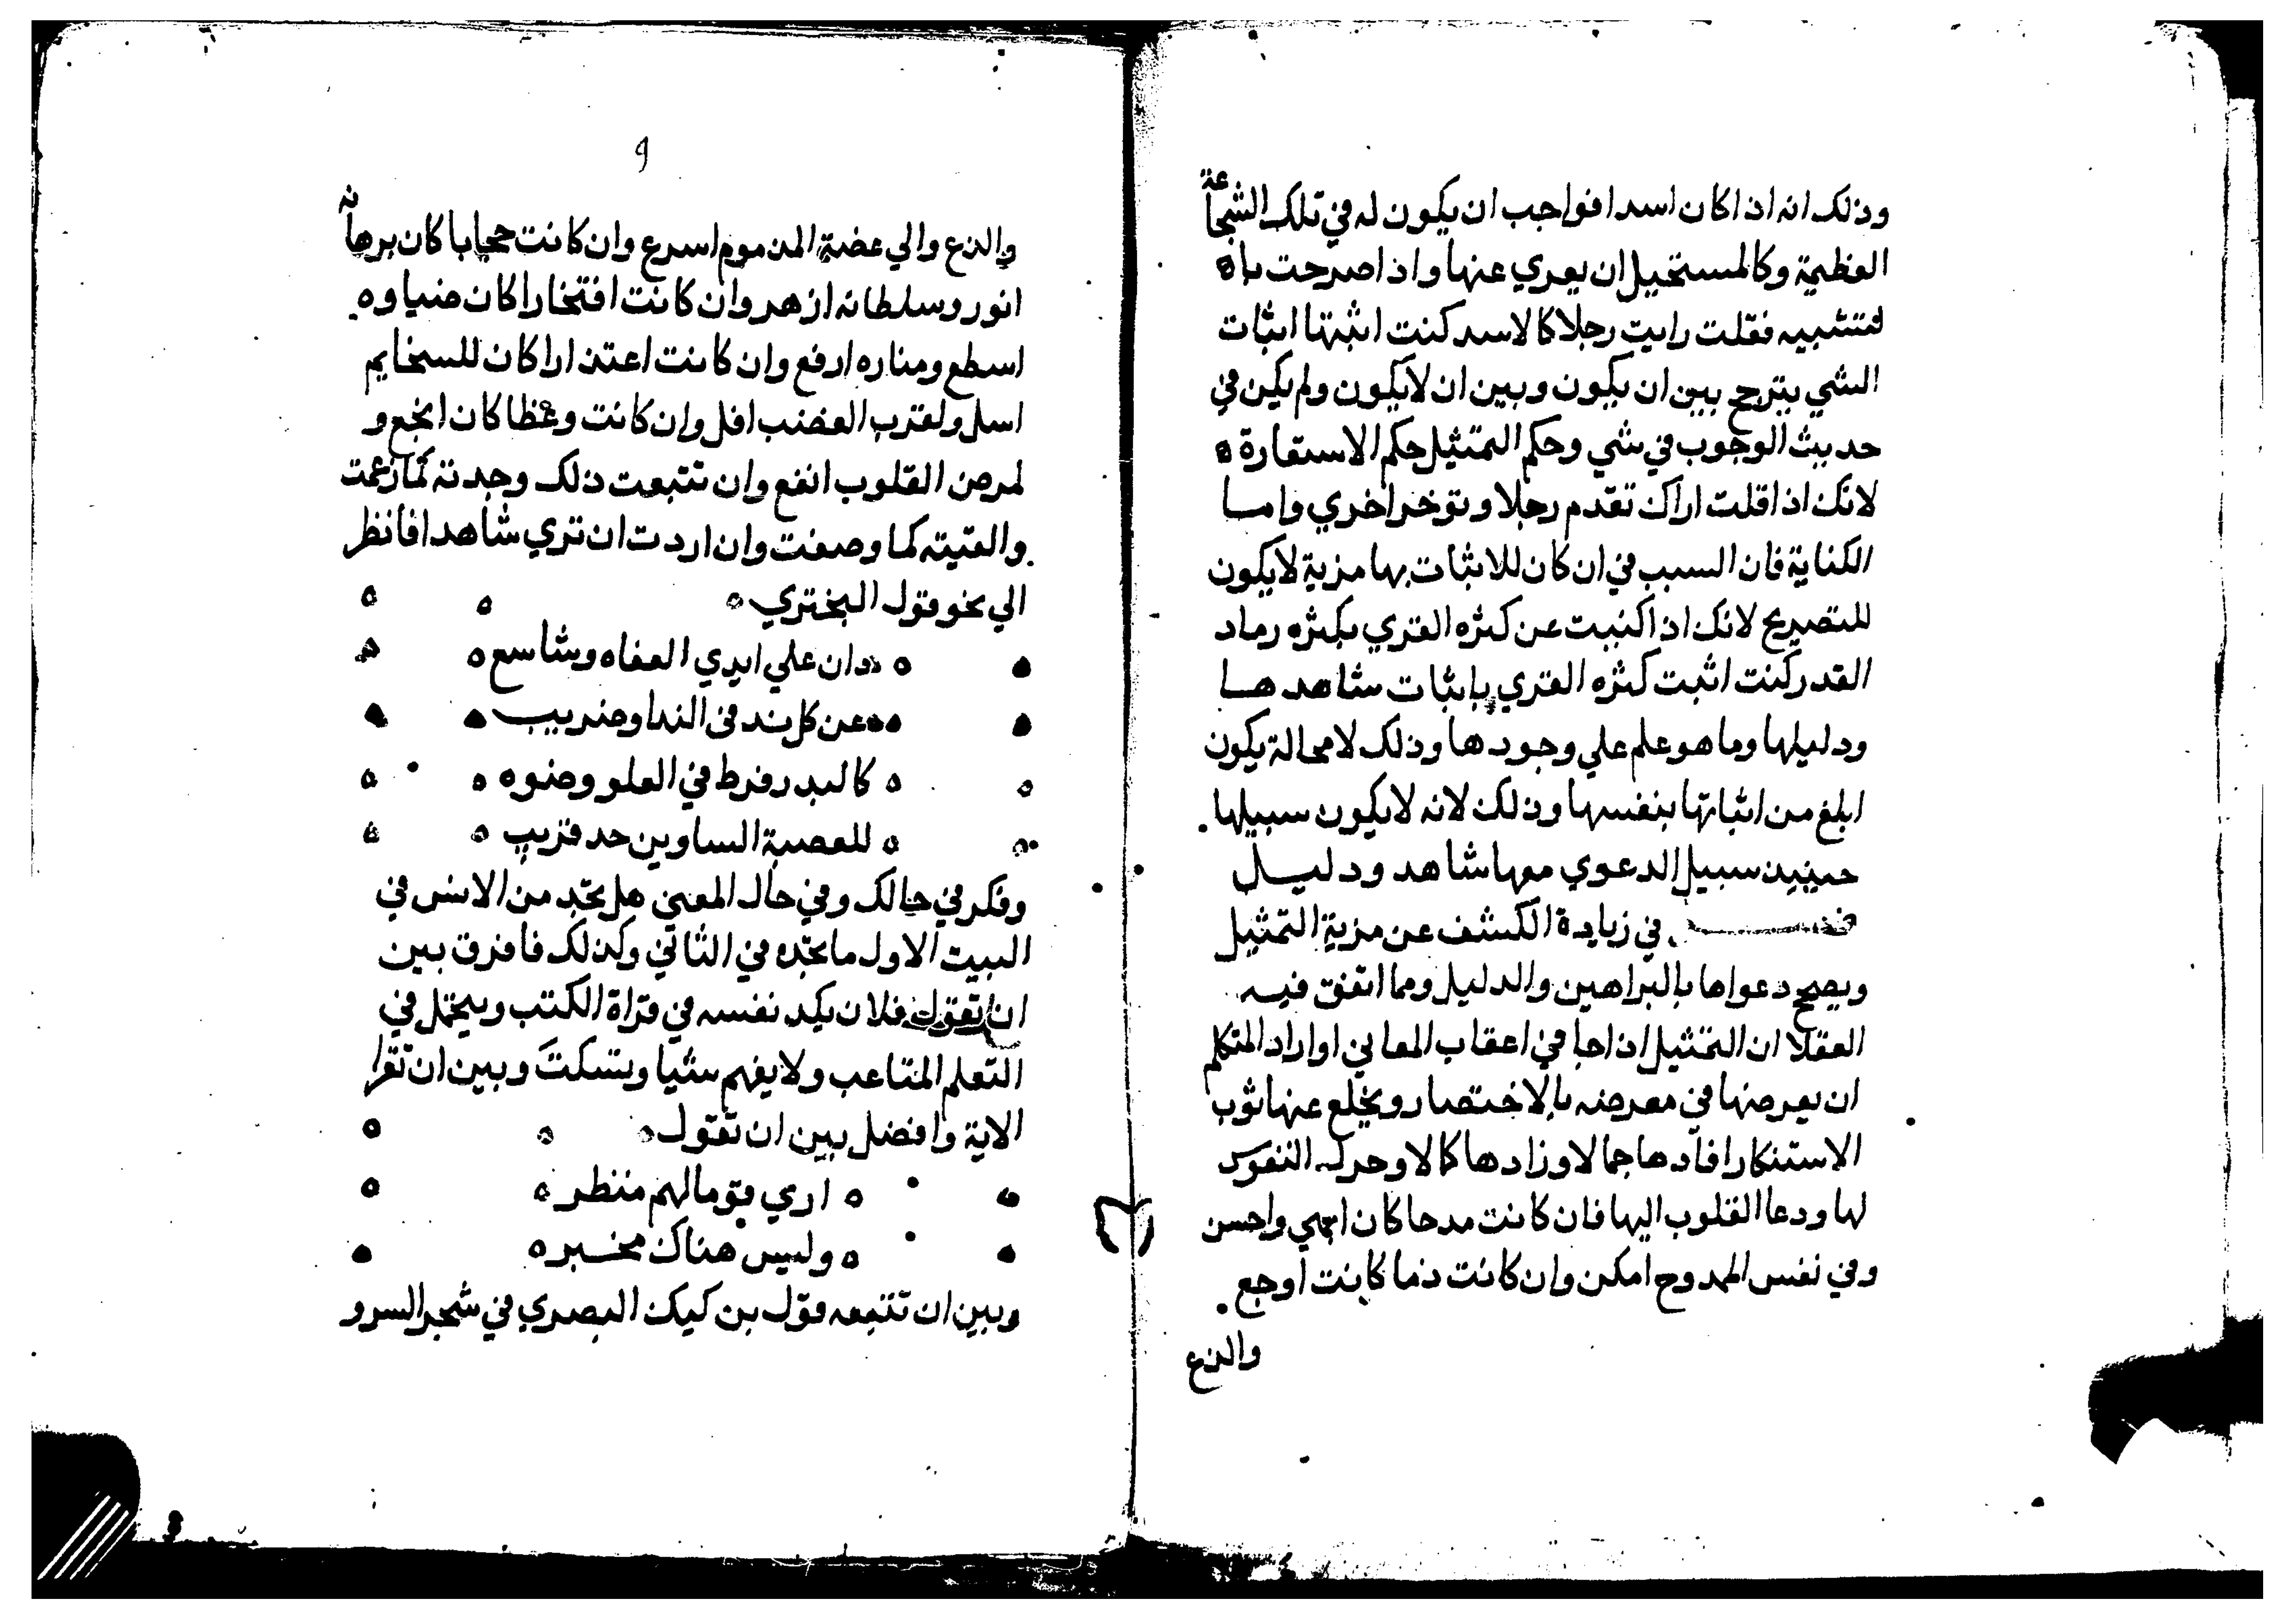 وذلك انه اذا كان اسدا فواجب ان يكون له في تلك الشجاعة
العظيمة وكالمستحيل ان يعري عنها واذا صرحت با
لتشبيه فقلت رايت رجلا كالاسد كنت اثبتها اثبات
الشي يترجح بين ان يكون وبين ان لا يكون ولم يكن في
حديث الوجوب في شي وحكم التمثيل حكم الاستعارة
لانك اذا قلت اراك تقدم رجلا وتوخر اخري واما
الكناية فان السبب في ان كان للاثبات بها مزية لا يكون
للتصريح لانك اذا كنيت عن كثره القري بكثره رماد
القدر كنت اثبت كثره القري باثبات شاهدها
ودليلها وما هو علم علي وجودها وذلك لا محالة يكون
ابلغ من اثباتها بنفسها وذلك لانه لا يكون سبيلها
حينيد سبيل الدعوي معها شاهد ودليل
في زيادة الكشف عن مزية التمثيل
ويصح دعواها بالبراهين والدليل ومما اتفق فيه
العقلا ان التمثيل اذا جا في اعقاب المعاني او اراد المتكلم
ان يعرضها في معرضه بالاختصار ويخلع عنها ثوب
الاستنكار افادها جمالا وزادها كمالا وحرك النفوس
لها ودعا القلوب اليها فان كانت مدحا كان ابهي واحسن
وفي نفس الممدوح امكن وان كانت ذما كانت اوجع
والذع
9
والذع والي عضة المذموم اسرع وان كانت حجابا كان برهانه
انور وسلطانه ازهر وان كانت افتخارا كان ضياوه
اسطع ومناره ارفع وان كانت اعتذارا كان للسخايم
اسل ولغرب الغضب افل وان كانت وعظا كان انجع و
لمرض القلوب انفع وان تتبعت ذلك وجدته كما زعمت
والفيته كما وصفت وان اردت ان تري شاهدا فانظر
الي نحو قول البختري
دان علي ايدي العفاه وشاسع
عن كل ند في الندا وضريب
كالبدر فرط في العلو وضوه
للعصبة الساوين حد قريب
وفكر في حالك وفي حال المعني هل تجد من الانس في
البيت الاول ما تجده في الثاني وكذلك فافرق بين
ان تقول فلان يكد نفسه في قراة الكتب ويتحمل في
التعلم المتاعب ولا يفهم شيا وتسكت وبين ان تقرا
الاية وافضل بين ان تقول
اري قوما لهم منظر
وليس هناك مخبر
وبين ان تتبعه قول بن كيك البصري في شجر السرو